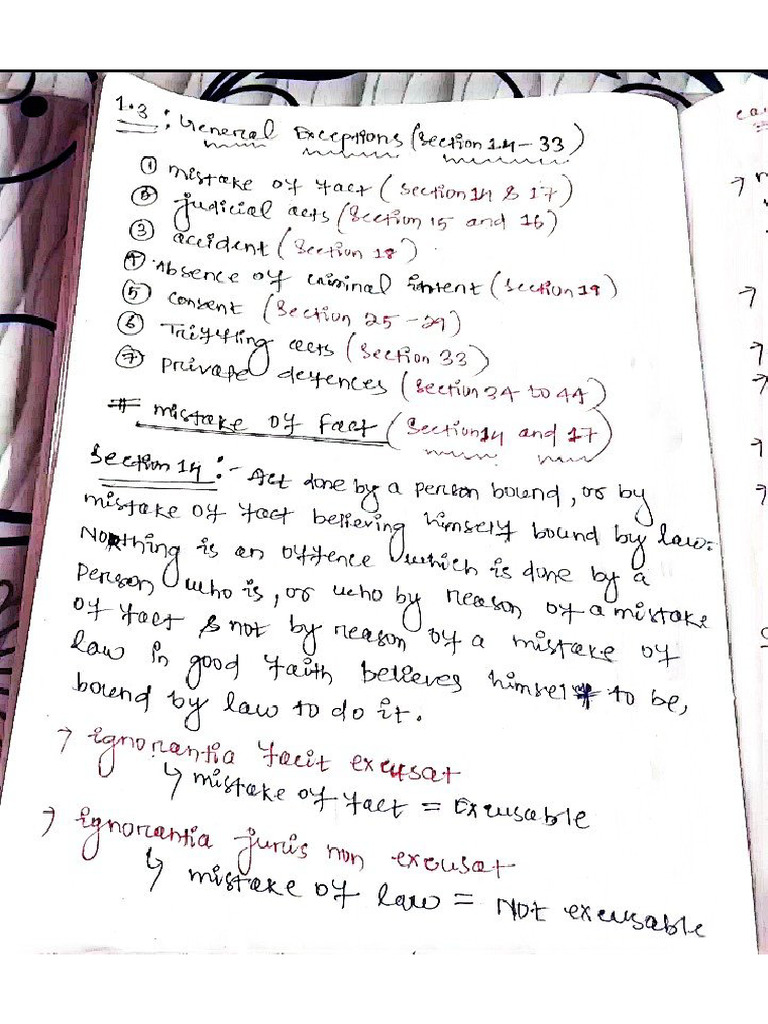 1.3: General Exceptions (Section 14-33)
① mistake of fact (Section 14 & 17)
② judicial acts (Section 15 and 16)
③ accident (Section 18)
④ Absence of criminal intent (Section 19)
⑤ Consent (Section 25-29)
⑥ Trifling acts (Section 33)
⑦ private defences (Section 34 to 44)
# mistake of fact (Section 14 and 17)
Section 14:- Act done by a person bound, or by
mistake of fact believing himself bound by law.
Nothing is an offence which is done by a
person who is, or who by reason of a mistake
of fact & not by reason of a mistake of
law in good faith believes himself to be,
bound by law to do it.
→ ignorantia facit excusat
↳ mistake of fact = Excusable
→ ignorantia juris non excusat
↳ mistake of law = Not excusable